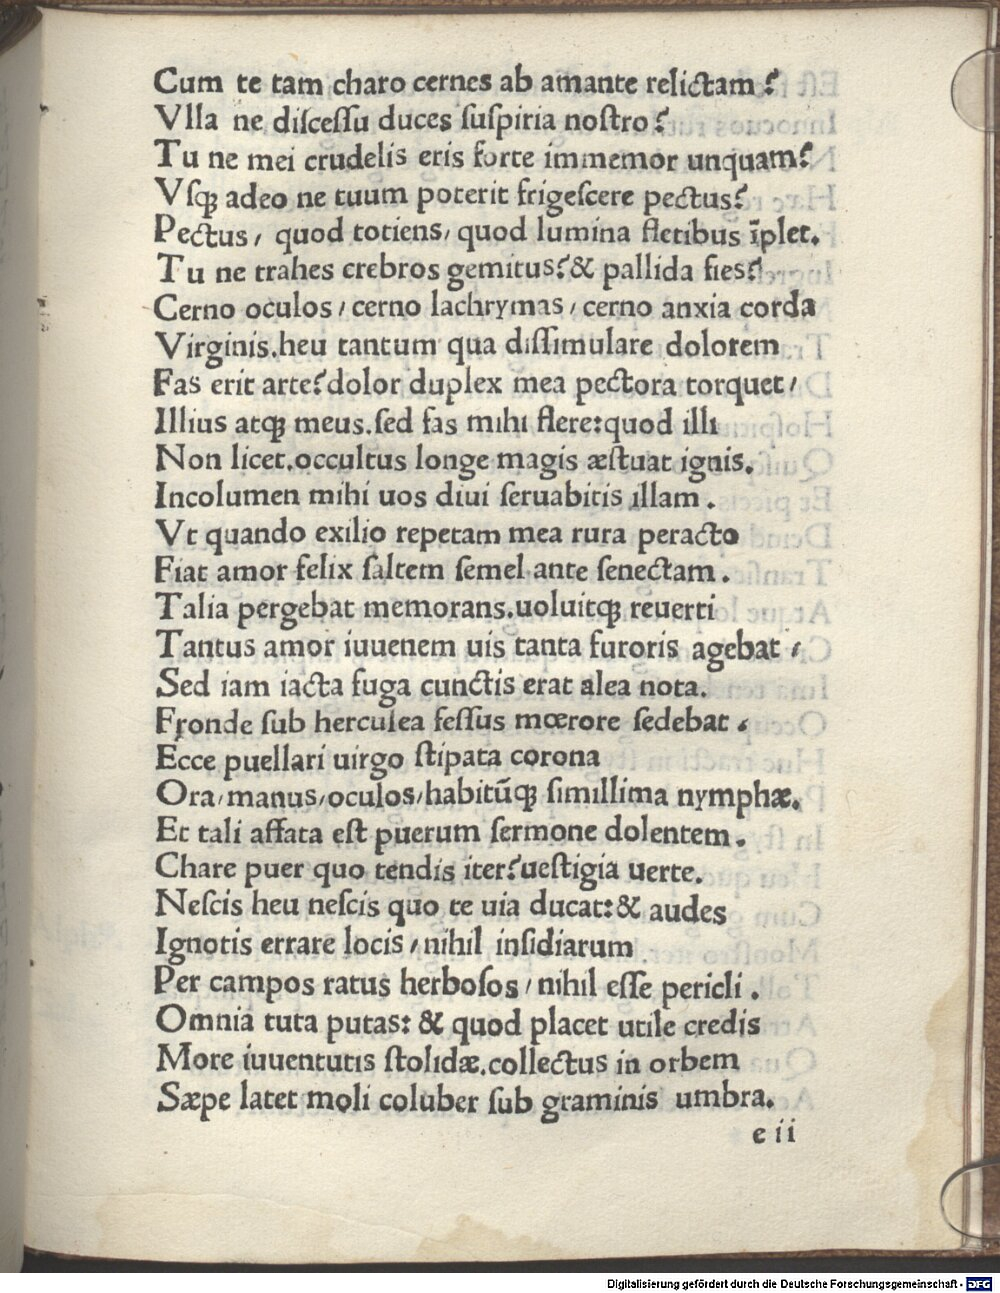 Cum te tam charo cernes ab amante relictam?
Vlla ne diſceſſu duces ſuſpiria noſtro?
Tu ne mei crudelis eris forte immemor unquam?
Vſqꝫ adeo ne tuum poterit frigeſcere pectus?
Pectus/ quod totiens/ quod lumina fletibus īplet.
Tu ne trahes crebros gemitus?& pallida fies?
Cerno oculos/cerno lachrymas/cerno anxia corda
Virginis.heu tantum qua diſſimulare dolorem
Fas erit arte?dolor duplex mea pectora torquet/
Illius atqꝫ meus.ſed fas mihi flere:quod illi
Non licet.occultus longe magis æſtuat ignis.
Incolumen mihi uos diui ſeruabitis illam.
Vt quando exilio repetam mea rura peracto
Fiat amor felix ſaltem ſemel ante ſenectam.
Talia pergebat memorans.uoluitqꝫ reuerti
Tantus amor iuuenem uis tanta furoris agebat/
Sed iam iacta fuga cunctis erat alea nota.
Fronde ſub herculea feſſus mœrore ſedebat.
Ecce puellari uirgo ſtipata corona
Ora/manus/oculos/habitūqꝫ ſimillima nymphæ.
Et tali affata eſt puerum ſermone dolentem.
Chare puer quo tendis iter?ueſtigia uerte.
Neſcis heu neſcis quo te uia ducat:& audes
Ignotis errare locis/nihil inſidiarum
Per campos ratus herboſos/nihil eſſe pericli.
Omnia tuta putas: & quod placet utile credis
More iuuentutis ſtolidæ.collectus in orbem
Sæpe latet moli coluber ſub graminis umbra.
e ii
Digitalisierung gefördert durch die Deutsche Forschungsgemeinschaft - DFG